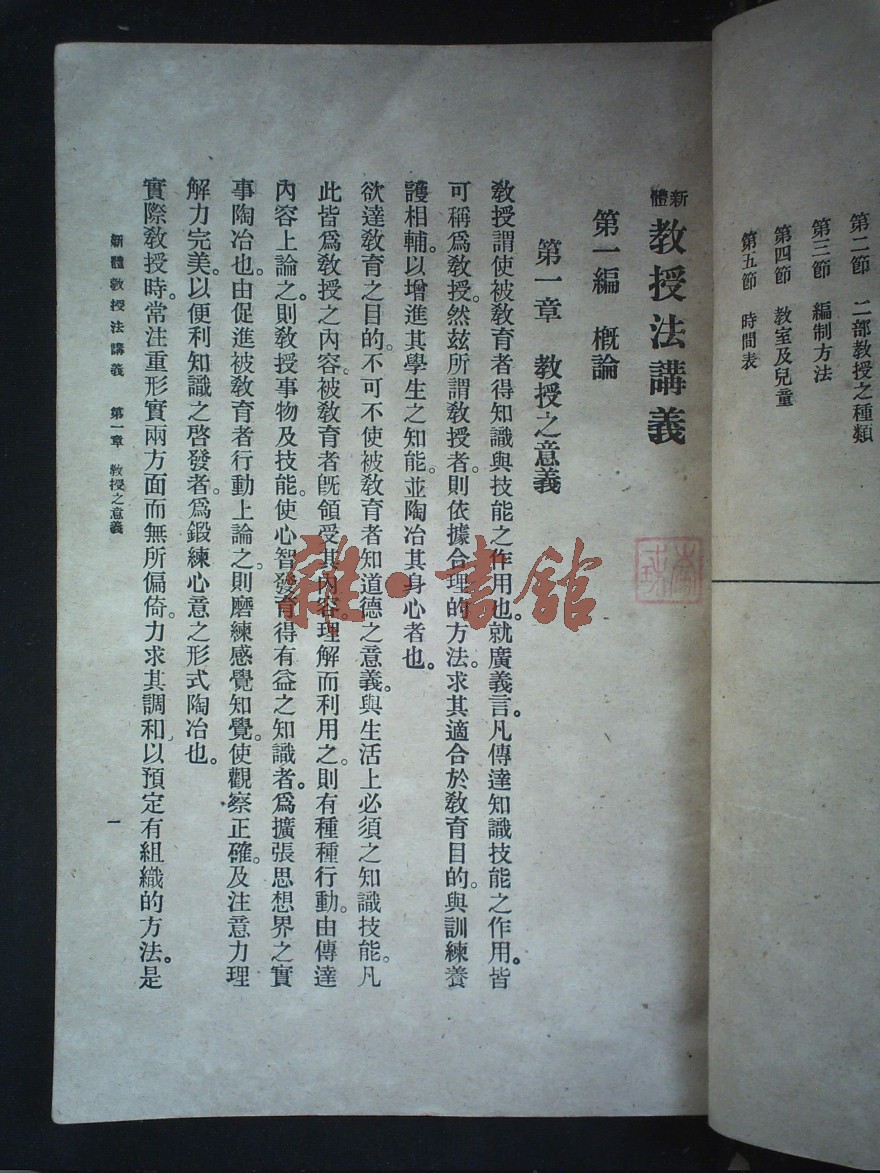 第二節　二部教授之種類
第三節　編制方法
第四節　教室及兒童
第五節　時間表
新體教授法講義
第一編　概論
第一章　教授之意義
教授謂使被教育者得知識與技能之作用也。就廣義言。凡傳達知識技能之作用。皆
可稱爲教授。然兹所謂教授者。則依據合理的方法。求其適合於教育目的。與訓練養
護相輔。以增進其學生之知能。並陶冶其身心者也。
欲達教育之目的。不可不使被教育者知道德之意義。與生活上必須之知識技能。凡
此皆爲教授之內容。被教育者旣領受其內容。理解而利用之。則有種種行動。由傳達
內容上論之。則教授事物及技能。使心智發育得有益之知識者。爲擴張思想界之實
事陶冶也。由促進被教育者行動上論之。則磨練感覺知覺。使觀察正確。及注意力理
解力完美。以便利知識之啓發者。爲鍛練心意之形式陶冶也。
實際教授時。常注重形實兩方面而無所偏倚。力求其調和。以預定有組織的方法。是
新體教授法講義　第一章　教授之意義
一
雜·書館